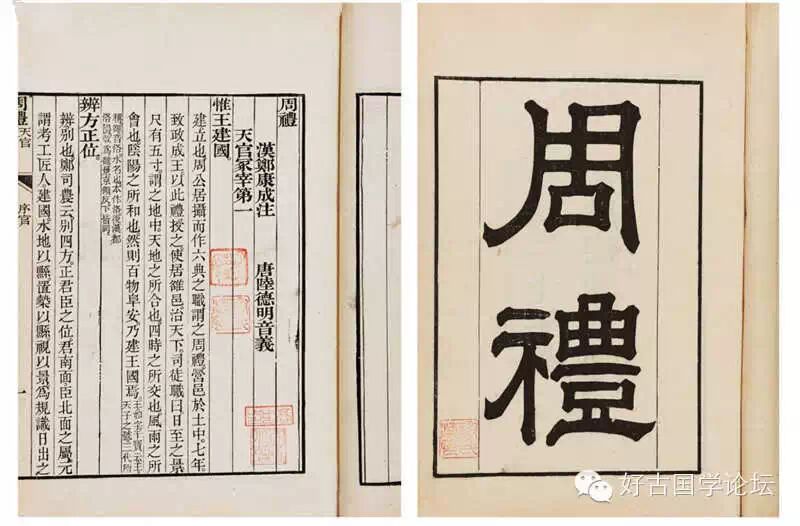 周禮
周禮
漢鄭康成注 唐陸德明音義
天官冢宰第一
惟王建國。
建立也周公居攝而作六典之職謂之周禮營邑於土中七年
致政成王以此禮授之使居雒邑治天下司徒職曰日至之景
尺有五寸謂之地中天地之所合也四時之所交也風雨之所
會也陰陽之所和也然則百物阜安乃建王國焉
辨方正位。
辨別也鄭司農云別四方正君臣之位君南面臣北面之屬元
謂考工匠人建國水地以縣置槷以縣視以景爲規識日出之
周禮 天官 序官 一
好古国学论坛